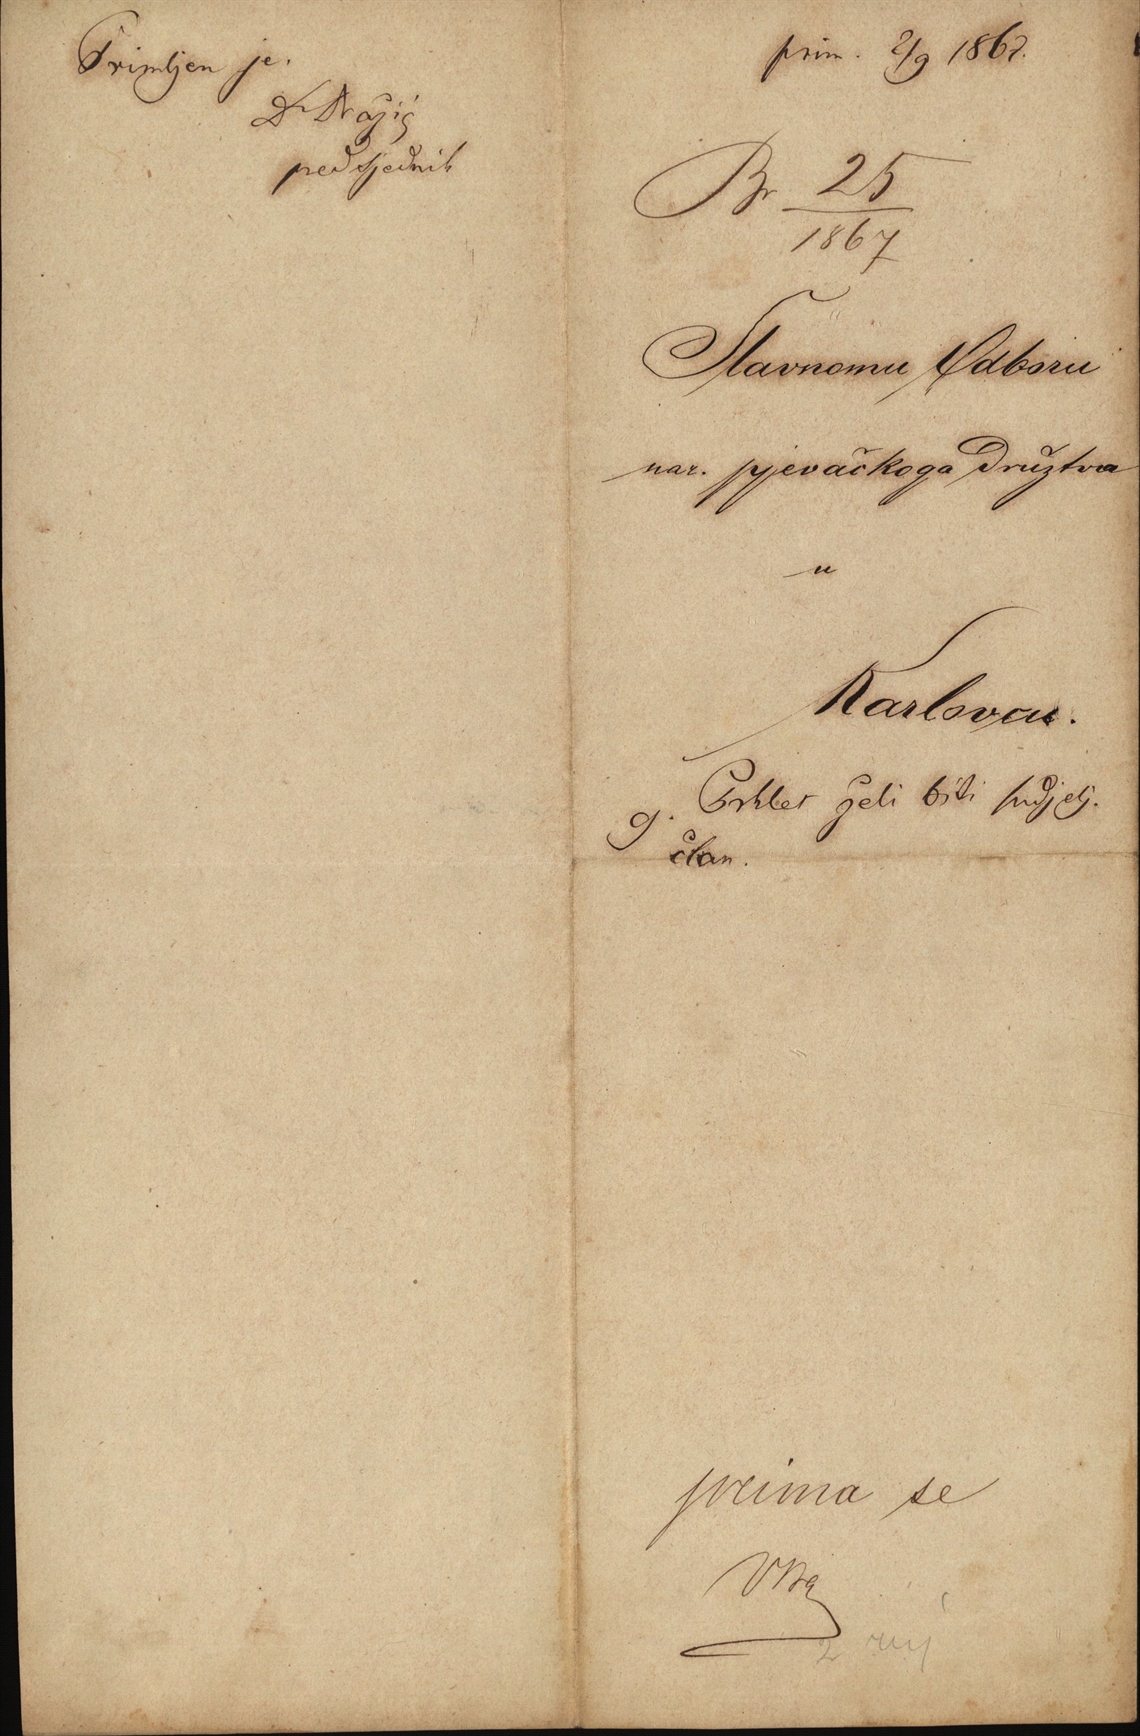 Primljen je.
Dr Dražić
predsjednik
prim. 2/9 1867.
Br 25
1867
Slavnomu Odboru
nar. pjevačkoga Družtva
u
Karlovcu.
g. Orkler želi biti sudjelj.
član.
prima se
2 ruj